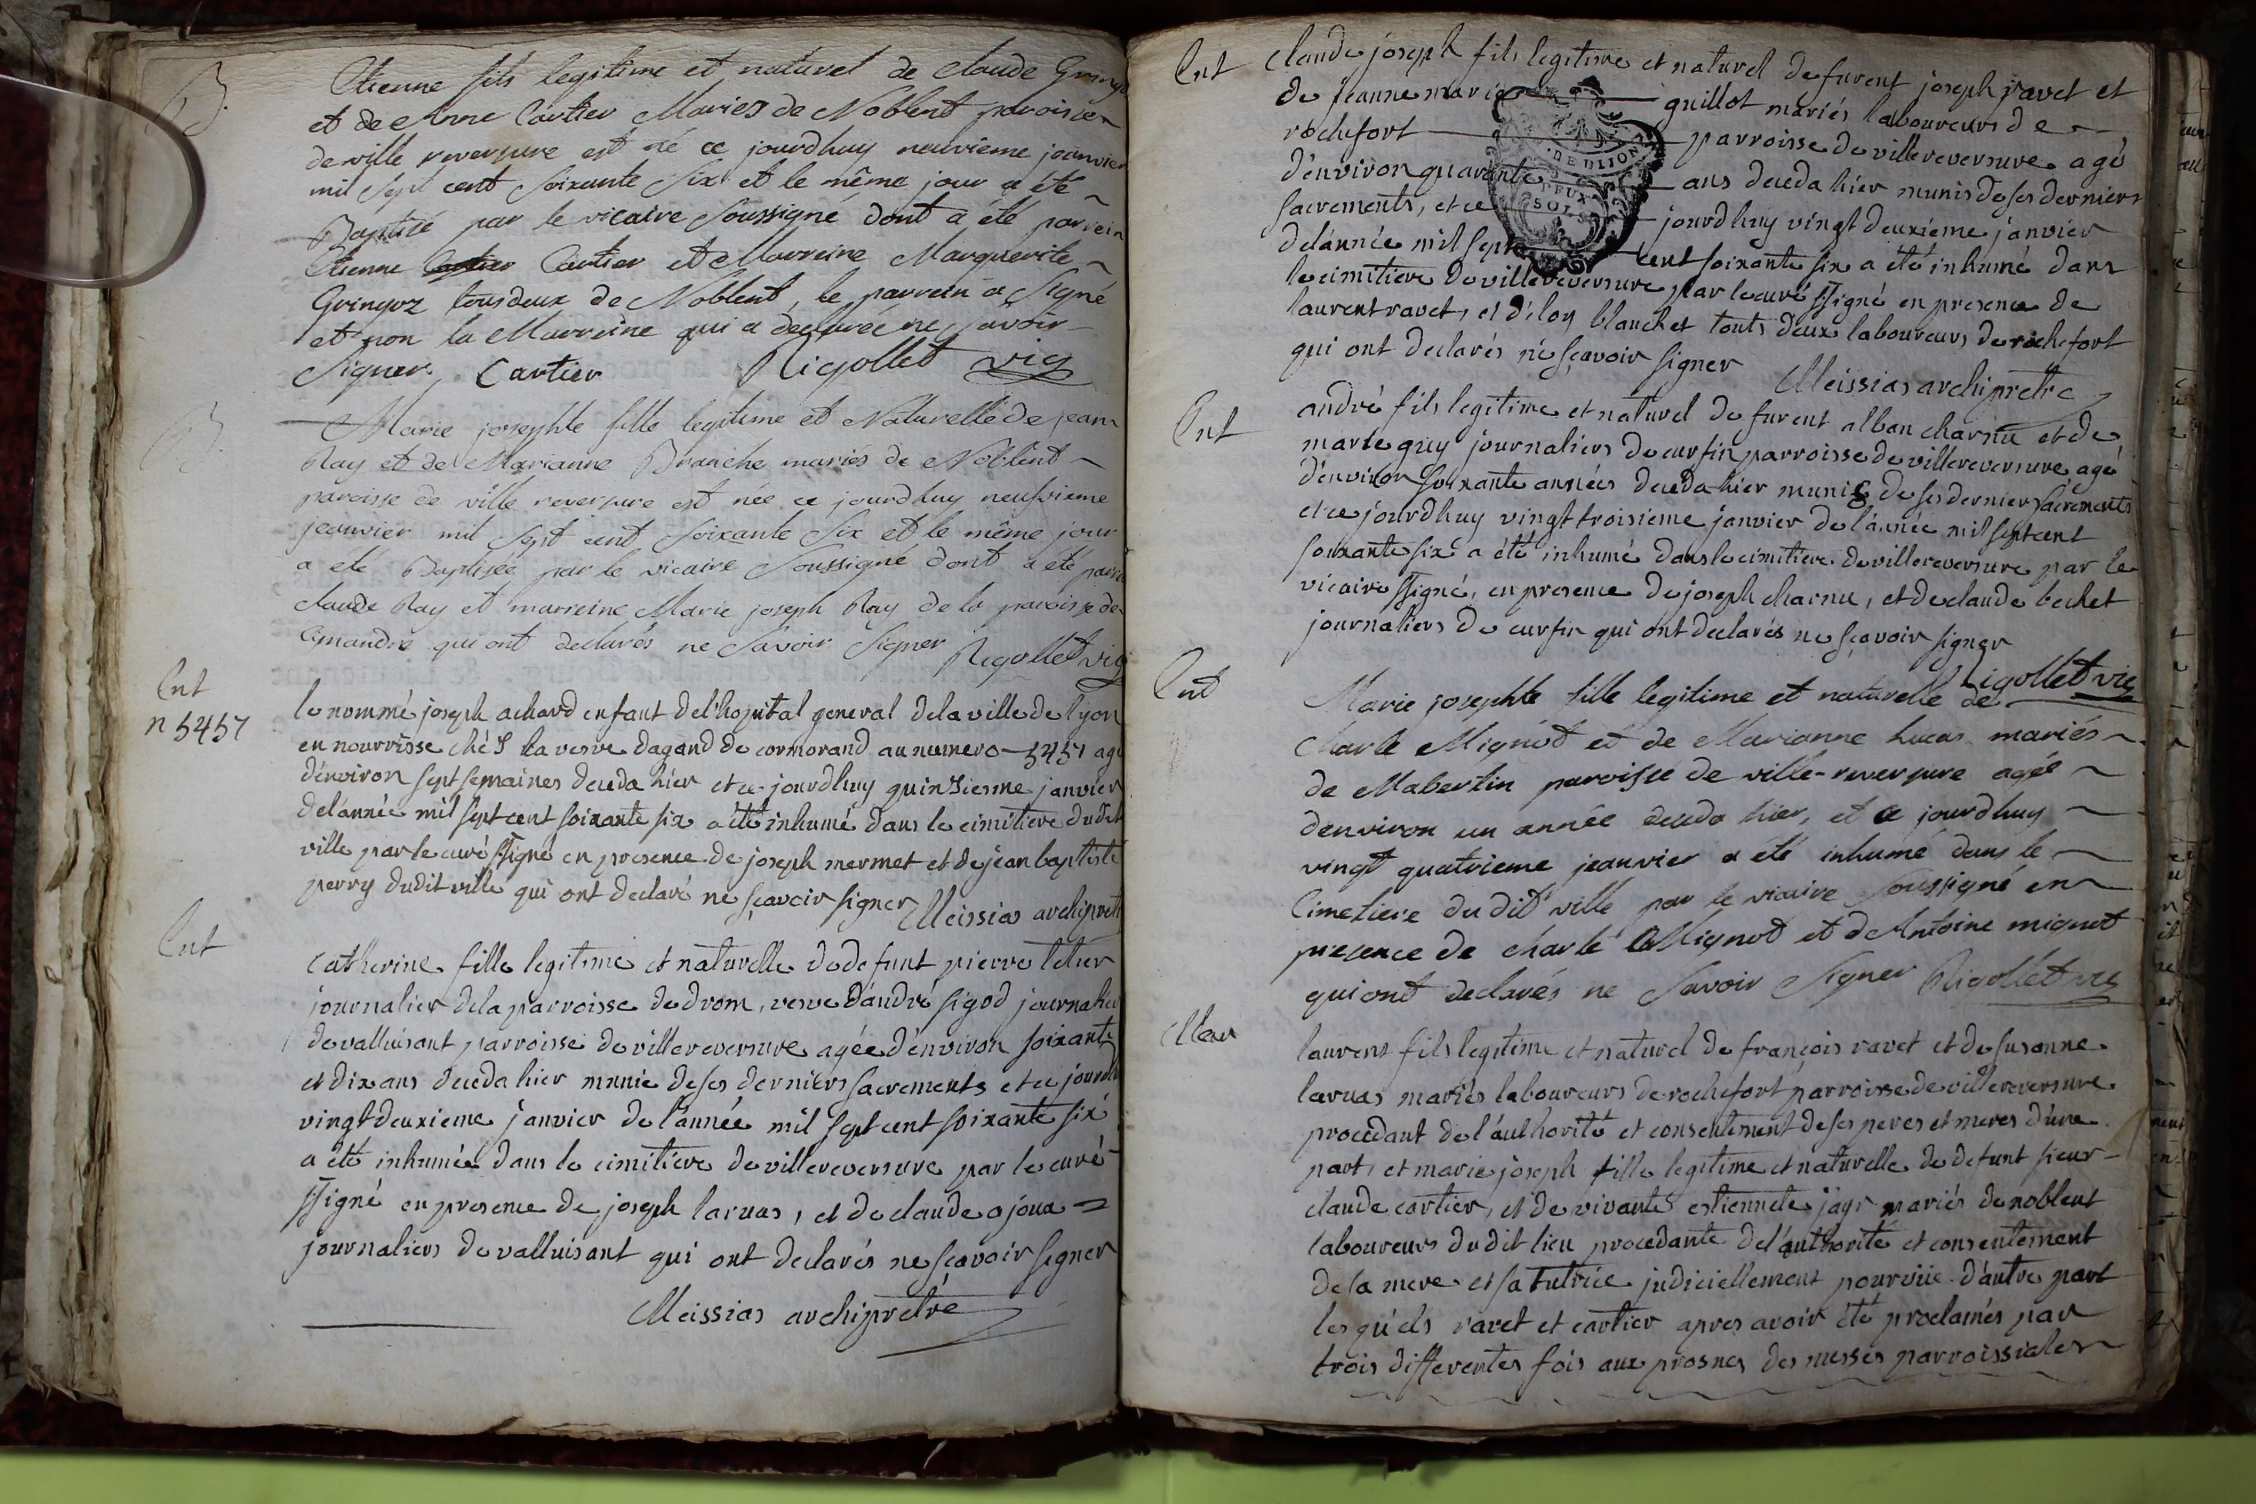 B.
Etienne fils legitime et naturel de claude Gringoz
et de Anne Cartier Mariez de Noblent paroisse
de ville reversure est né ce jourdhuy neuvieme janvier
mil sept cent soixante six et le même jour a été
Baptisé par le vicaire soussigné dont a été parrein
Etienne Cartier et Marreine Marguerite
Gringoz tous deux de Noblent, le parrein a signé
et non la Marreine qui a declarée ne savoir
signer Cartier Rigollet vic
B.
Marie josephte fille legitime et Naturelle de jean
Ray et de Marianne Branche mariés de Noblent
paroisse de ville reversure est née ce jourdhuy neufvieme
jeanvier mil sept cent soixante six et le même jour
a été Baptisée par le vicaire soussigné dont a été parrin
claude Ray et marreine Marie joseph Ray de la paroisse de
Simandre qui ont declarés ne savoir signer Rigollet vic
Ent
n 5457
le nommé joseph achard enfant de l'hopital general de la ville de lyon
en nourrisse chés la vesve dagand de cormorand au numero 5457 agé
d'environ sept semaines deceda hier et ce jourdhuy quinsieme janvier
de l'année mil sept cent soixante six a été inhumé dans le cimitiere dudit
ville par le curé ssigné en presence de joseph mermet et de jean baptiste
perry dudit ville qui ont declaré ne sçavoir signer Meissias archipretre
Ent
Catherine fille legitime et naturelle de defunt pierre tellier
journalier de la parroisse de drom, vesve d'andré sigod journalier
de valluisant parroisse de villereversure agée d'environ soixante
et dix ans deceda hier munie de ses derniers sacrements et ce jourdhuy
vingt deuxieme janvier de l'année mil sept cent soixante six
a été inhumée dans le cimitiere de villereversure par le curé
ssigné en presence de joseph laruas, et de claude ajoux
journaliers de valluisant qui ont declarés ne sçavoir signer
Meissias archipretre
Ent
claude joseph fils legitime et naturel de furent joseph ravet et
de jeanne marie guillot mariés laboureurs de
rochefort parroisse de villereversure agé
d'environ quarante ans deceda hier munis de ses derniers
sacrements, et ce jourdhuy vingt deuxieme janvier
de l'année mil sept cent soixante six a été inhumé dans
le cimitiere de villereversure par le curé ssigné en presence de
laurent ravet, et d'éloy blanchet touts deux laboureurs de rochefort
qui ont declarés ne sçavoir signer Meissias archipretre
DE DIJON
DEUX
SOLS
Ent
andré fils legitime et naturel de furent alban charnu et de
marie guy journaliers de curfin parroisse de villereversure agé
d'environ soixante années deceda hier munis de ses derniers sacrements
et ce jourdhuy vingt troisieme janvier de l'année mil sept cent
soixante six a été inhumé dans le cimitiere de villereversure par le
vicaire ssigné, en presence de joseph charnu, et de claude bechet
journaliers de curfin qui ont declarés ne sçavoir signer
Rigollet vic
Ent
Marie josephte fille legitime et naturelle de
charle Mignot et de Marianne lucas mariés
de Mabertin paroisse de ville-reversure agée
denviron un année deceda hier, et ce jourdhuy
vingt quatrieme jeanvier a été inhumé dans le
Cimetiere du dit ville par le vicaire soussigné en
presence de charle Mignot et de Antoine mignot
qui ont declarés ne savoir signer Rigollet vic
Mar
laurens fils legitime et naturel de françois ravet et de susanne
laruas mariés laboureurs de rochefort parroisse de villereversure
procedant de l'authorité et consentement de ses peres et meres d'une
part, et marie joseph fille legitime et naturelle de defunt sieur
claude cartier, et de vivante estiennete jayr mariés de noblent
laboureurs du dit lieu procedante de l'authorité et consentement
de sa mere et sa tutrice judiciellement pourvüe d'autre part
les quels ravet et cartier apres avoir été proclamés par
trois differentes fois aux prosnes des messes parroissiales